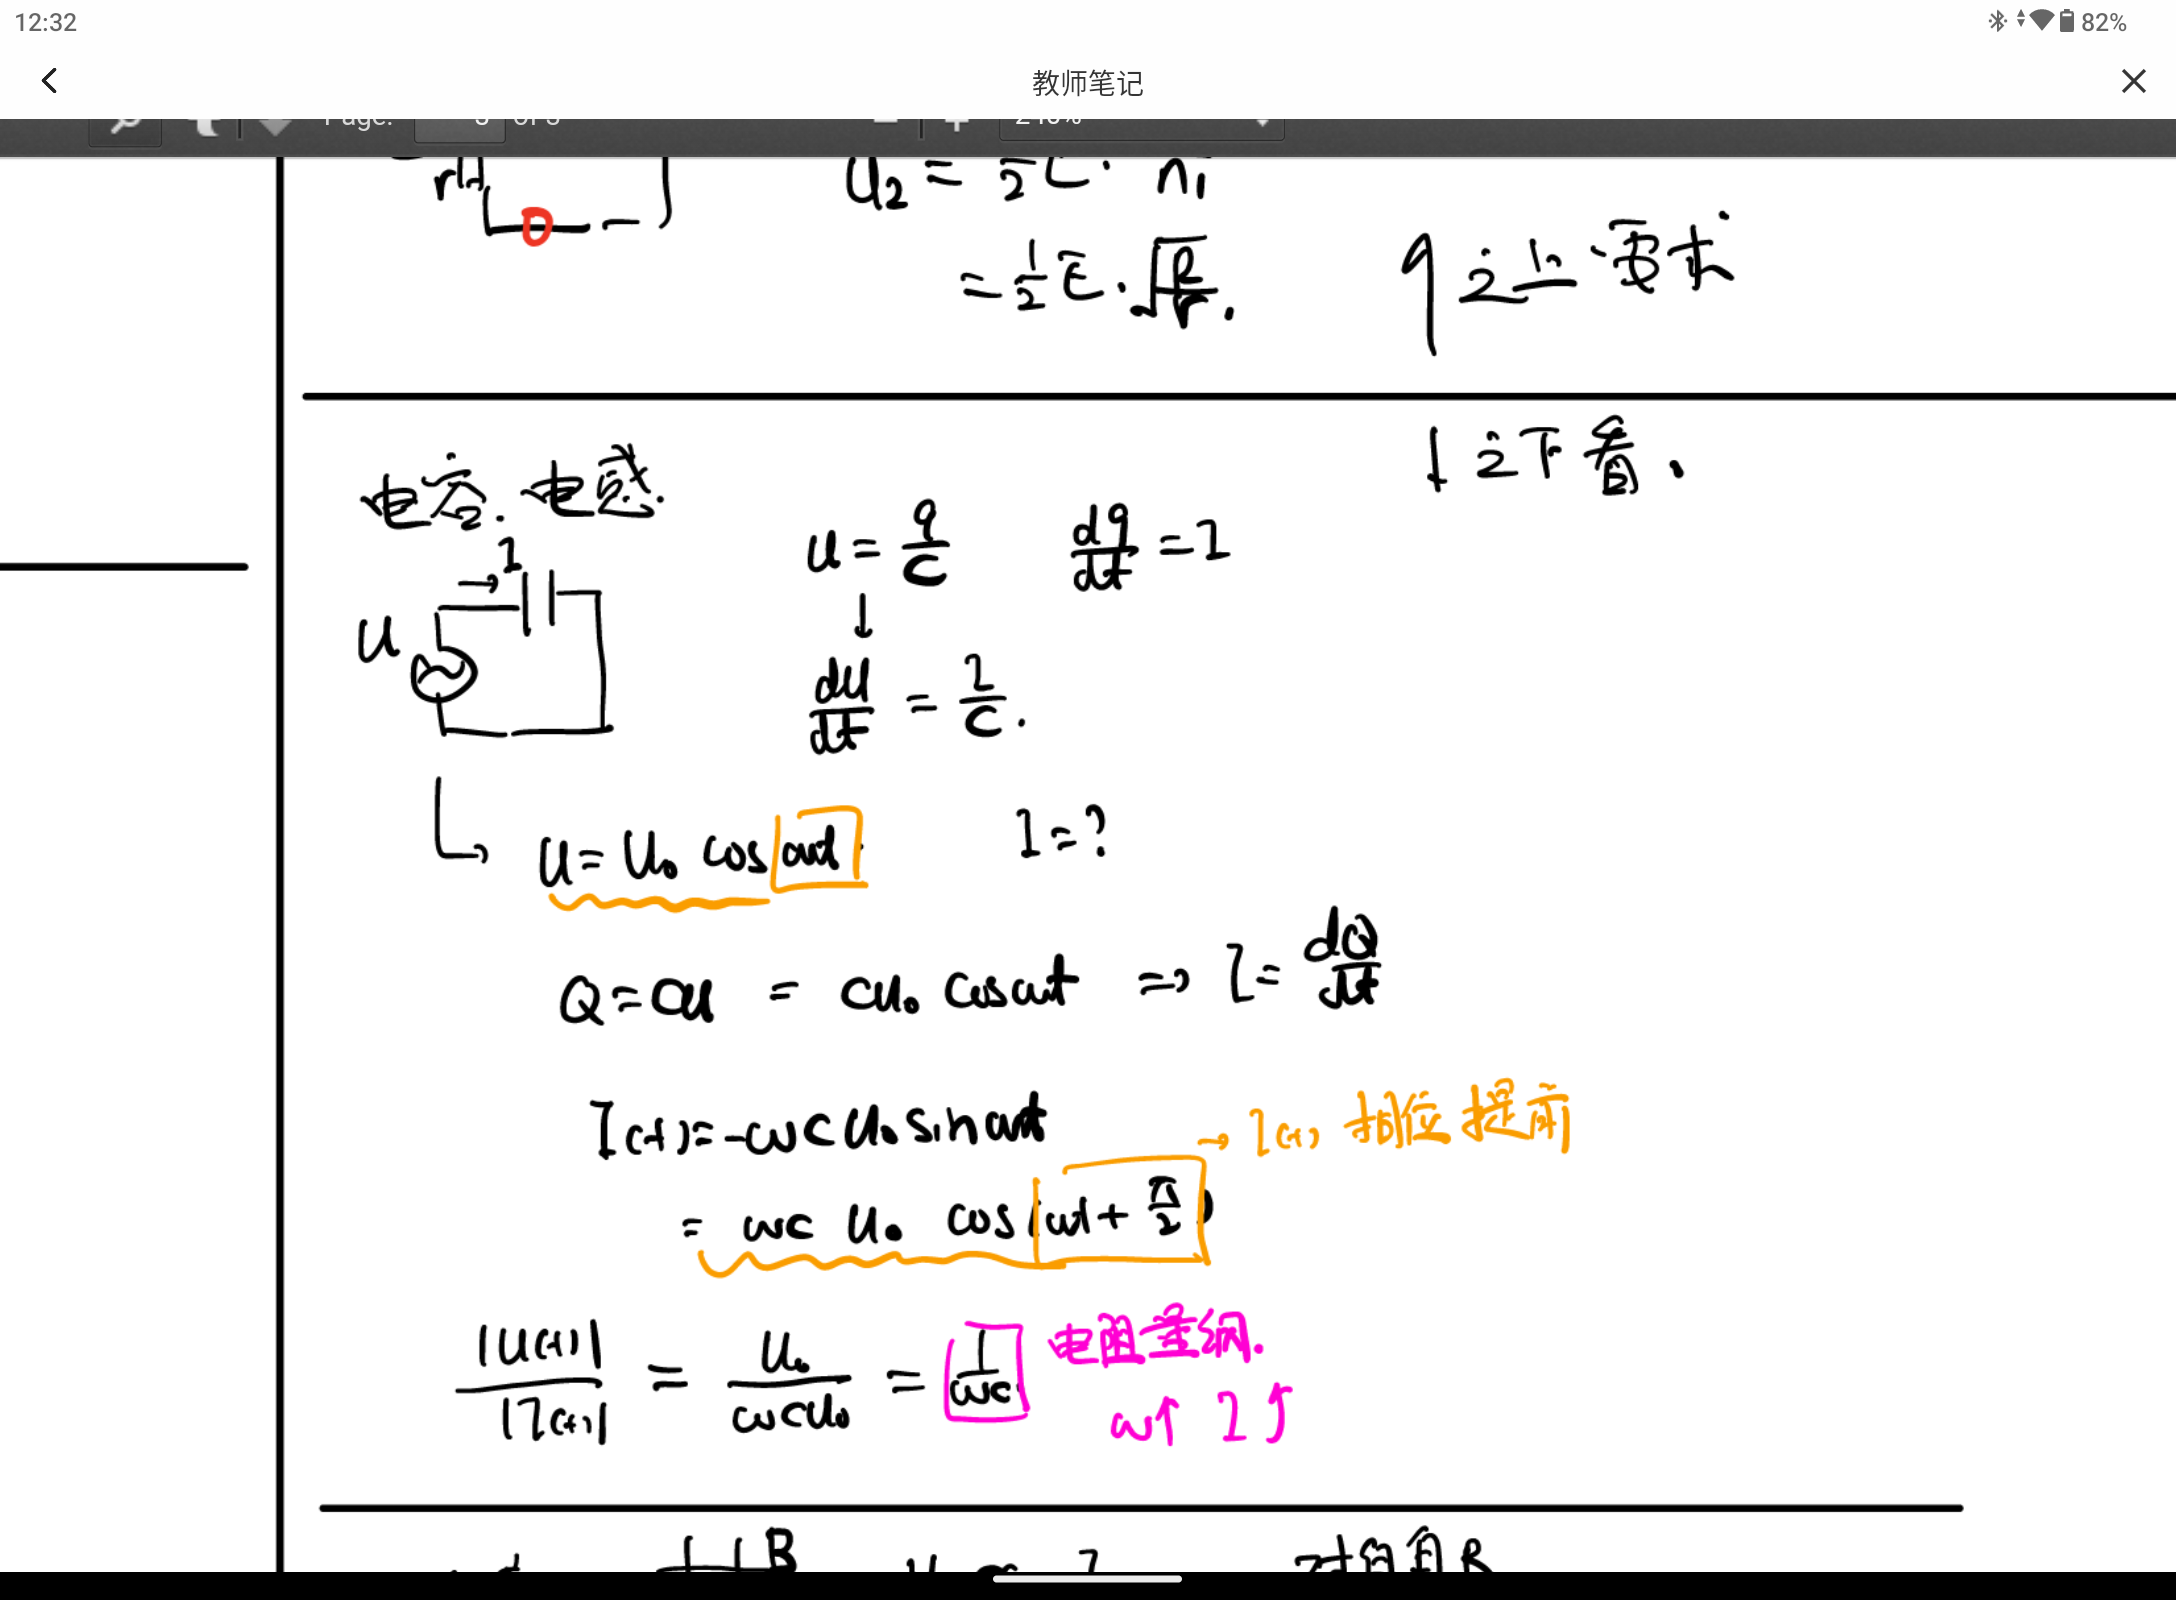 12:32
82%
教师笔记
Page: of 3
r
U₂ = ½E · n₁
= ½ E · √(R/r) .
之上 要求
之下看 .
电容 . 电感 .
I
U
u = q/C    dq/dt = I
↓
du/dt = I/C .
U = U₀ cos ωt    I = ?
Q = CU = CU₀ cos ωt ⇒ I = dQ/dt
I(t) = -ωC U₀ sin ωt
→ I(t) 相位提前
= ωC U₀ cos(ωt + π/2)
|U(t)|/|I(t)| = U₀/ωCU₀ = 1/ωC
电阻量纲 .
ω↑ I↑
B